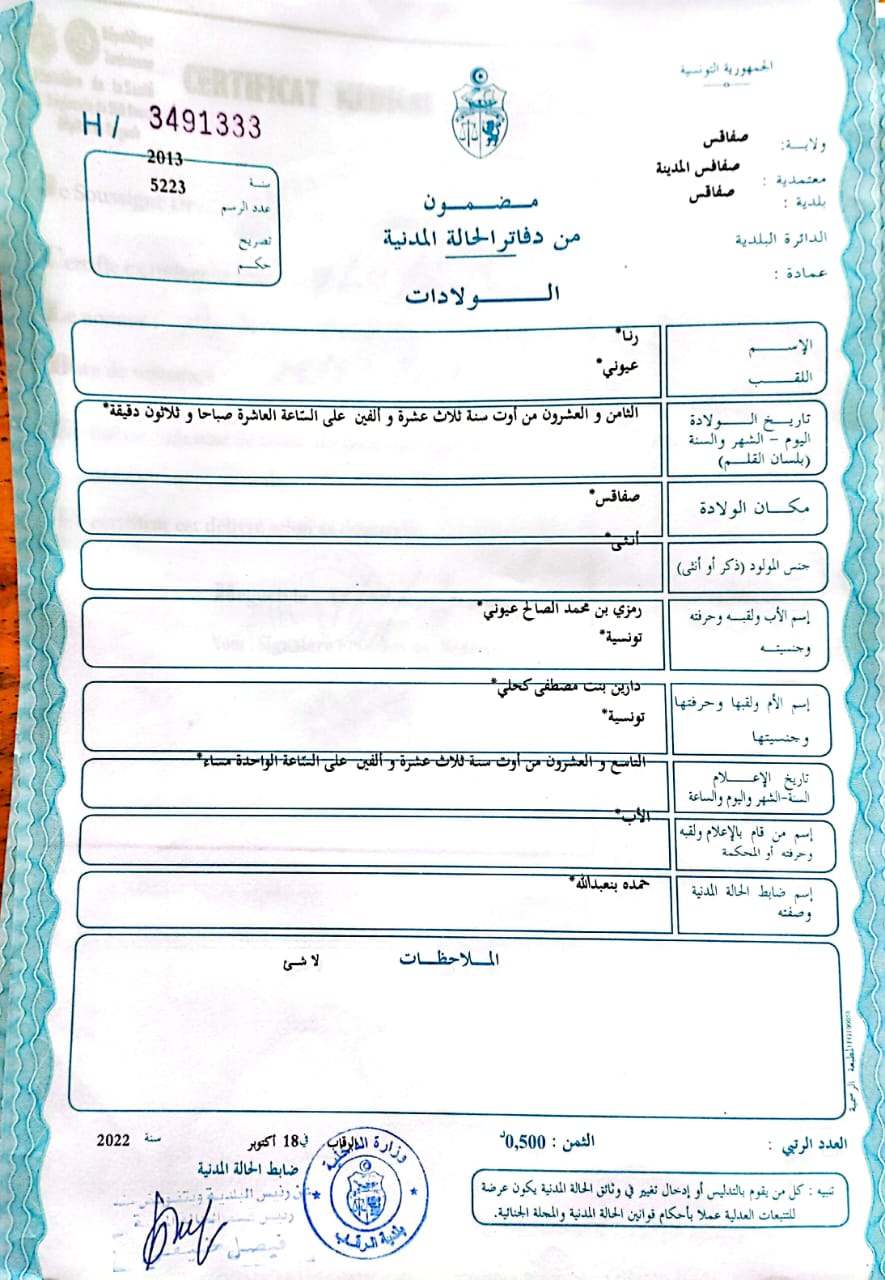 الجمهورية التونسية
H/ 3491333
ولاية: صفاقس
معتمدية : صفاقس المدينة
بلدية : صفاقس
الدائرة البلدية
عمادة :
سنة 2013
عدد الرسم 5223
تصريح
حكم
مضمون
من دفاتر الحالة المدنية
الولادات
الإسم رنا*
اللقب عيوني*
تاريخ الولادة
اليوم - الشهر والسنة
(بلسان القلم)
الثامن و العشرون من أوت سنة ثلاث عشرة و ألفين على الساعة العاشرة صباحا و ثلاثون دقيقة*
مكان الولادة صفاقس*
جنس المولود (ذكر أو أنثى) أنثى*
إسم الأب ولقبه وحرفته
وجنسيته
رمزي بن محمد الصالح عيوني*
تونسية*
إسم الأم ولقبها وحرفتها
وجنسيتها
دارين بنت مصطفى كحلي*
تونسية*
تاريخ الإعلام
السنة-الشهر واليوم والساعة
التاسع و العشرون من أوت سنة ثلاث عشرة و ألفين على الساعة الواحدة مساء*
إسم من قام بالإعلام ولقبه
وحرفته أو المحكمة
الأب*
إسم ضابط الحالة المدنية
وصفته
حمده بنعبدالله*
الملاحظات
لا شئ
المطبعة الرسمية
العدد الرتبي :
الثمن : 0,500د
الرقاب في 18 أكتوبر سنة 2022
ضابط الحالة المدنية
عن رئيس البلدية وبتفويض منه
وزارة الداخلية
بلدية الرقاب
تنبيه : كل من يقوم بالتدليس أو إدخال تغيير في وثائق الحالة المدنية يكون عرضة
للتتبعات العدلية عملا بأحكام قوانين الحالة المدنية والمجلة الجنائية.